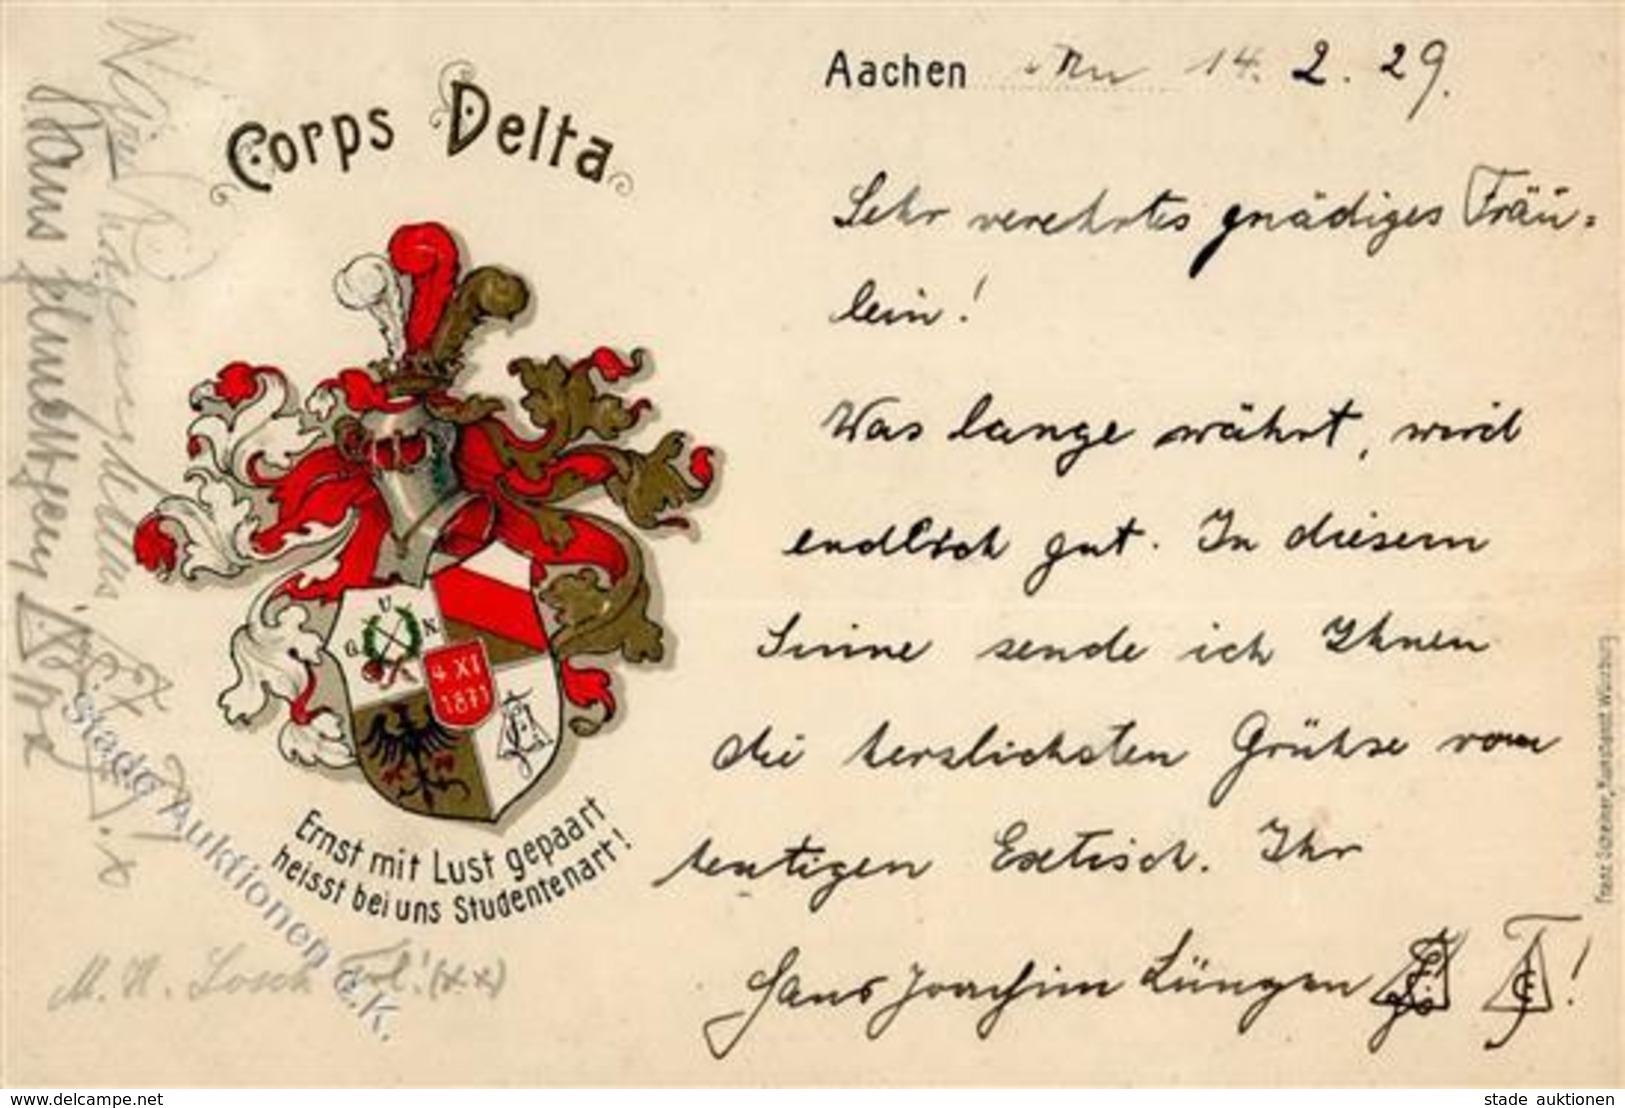 Corps Delta
Aachen, den 14. 2. 29.
Sehr verehrtes gnädiges Fräu=
lein!
Was lange währt, wird
endlich gut. In diesem
Sinne sende ich Ihnen
die herzlichsten Grühse vom
heutigen Extisch. Ihr
Hans Joachim Lüngen
G. U. N.
4 XI
1871
Ernst mit Lust gepaart
heisst bei uns Studentenart!
M. H. Losch
Hans
Franz Scheiner, Kunstanst. Würzburg
stade Auktionen e.K.
www.delcampe.net
stade auktionen